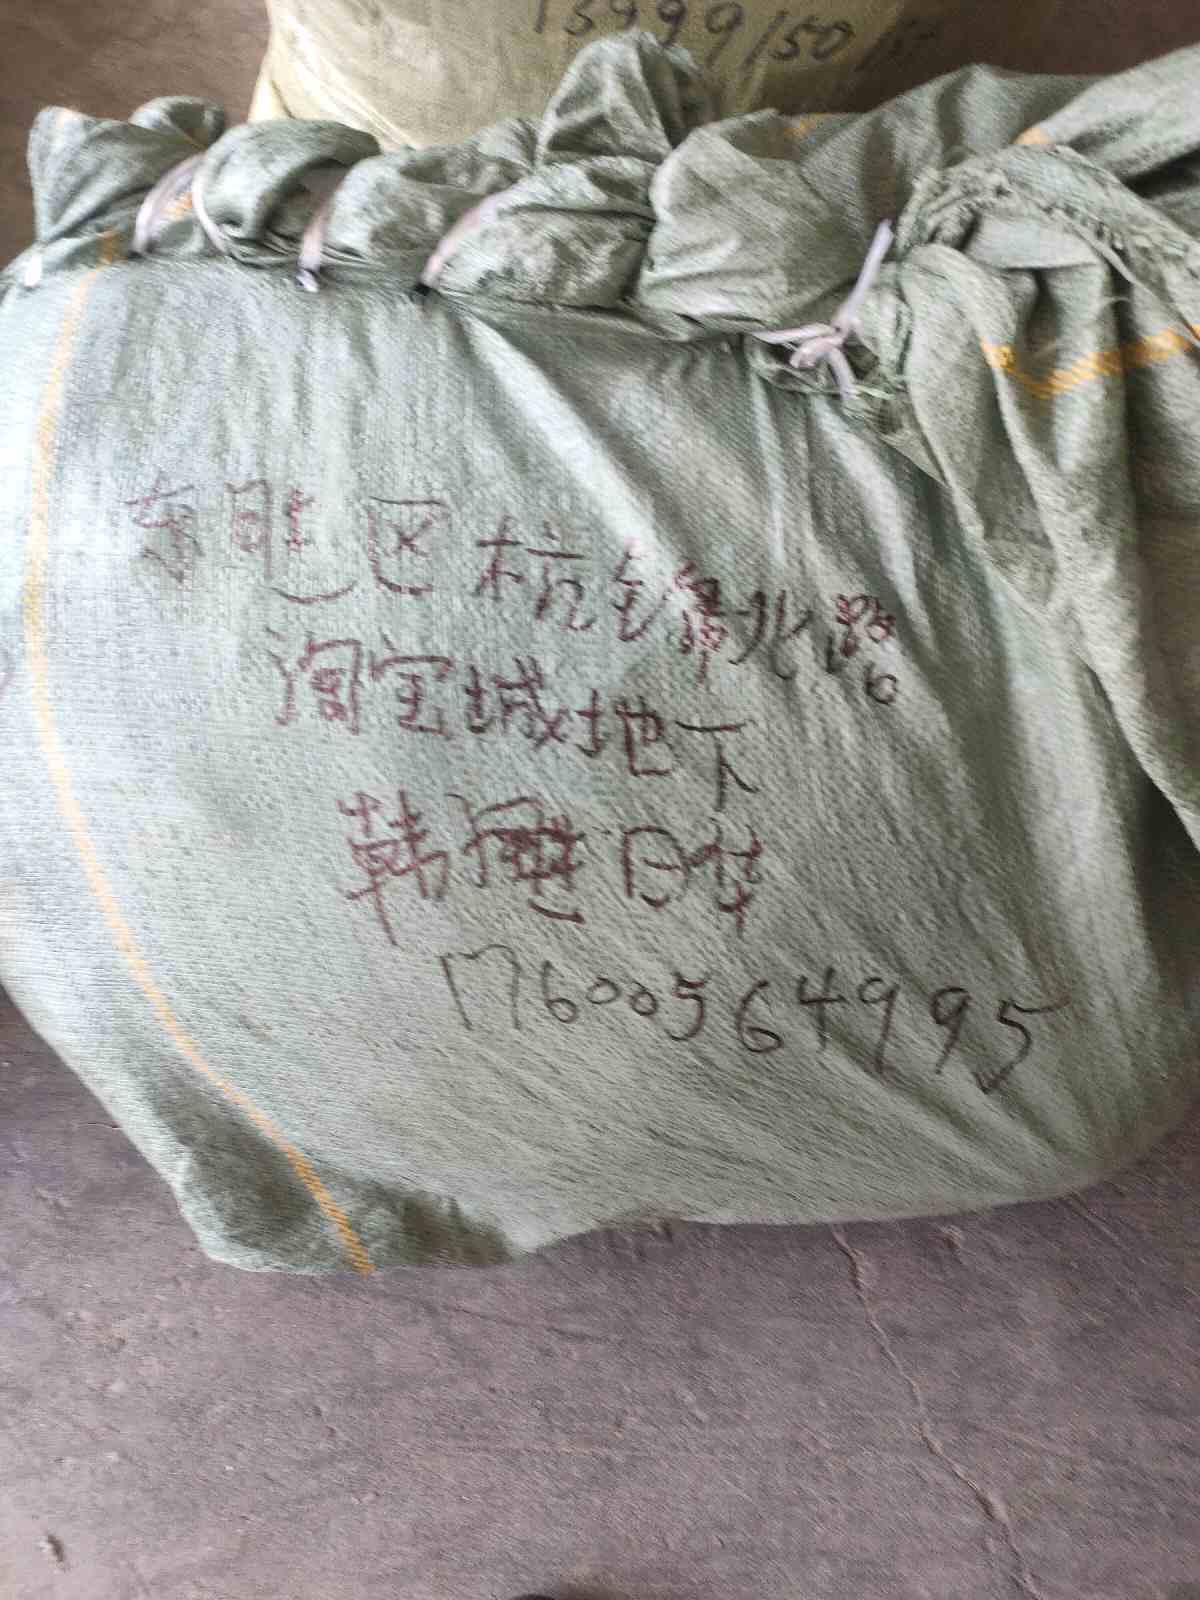 13999/50
东胜区杭锦北路
淘宝城地下
韩 日华
17600564995